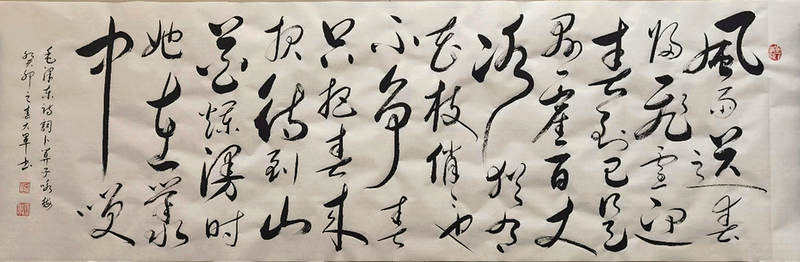 风雨送春
归飞雪迎
春到已是
悬崖百丈
冰犹有
花枝俏俏也
不争春
只把春来
报待到山
花烂漫时
她在丛
中笑
毛泽东诗词卜算子咏梅
癸卯之春大军书